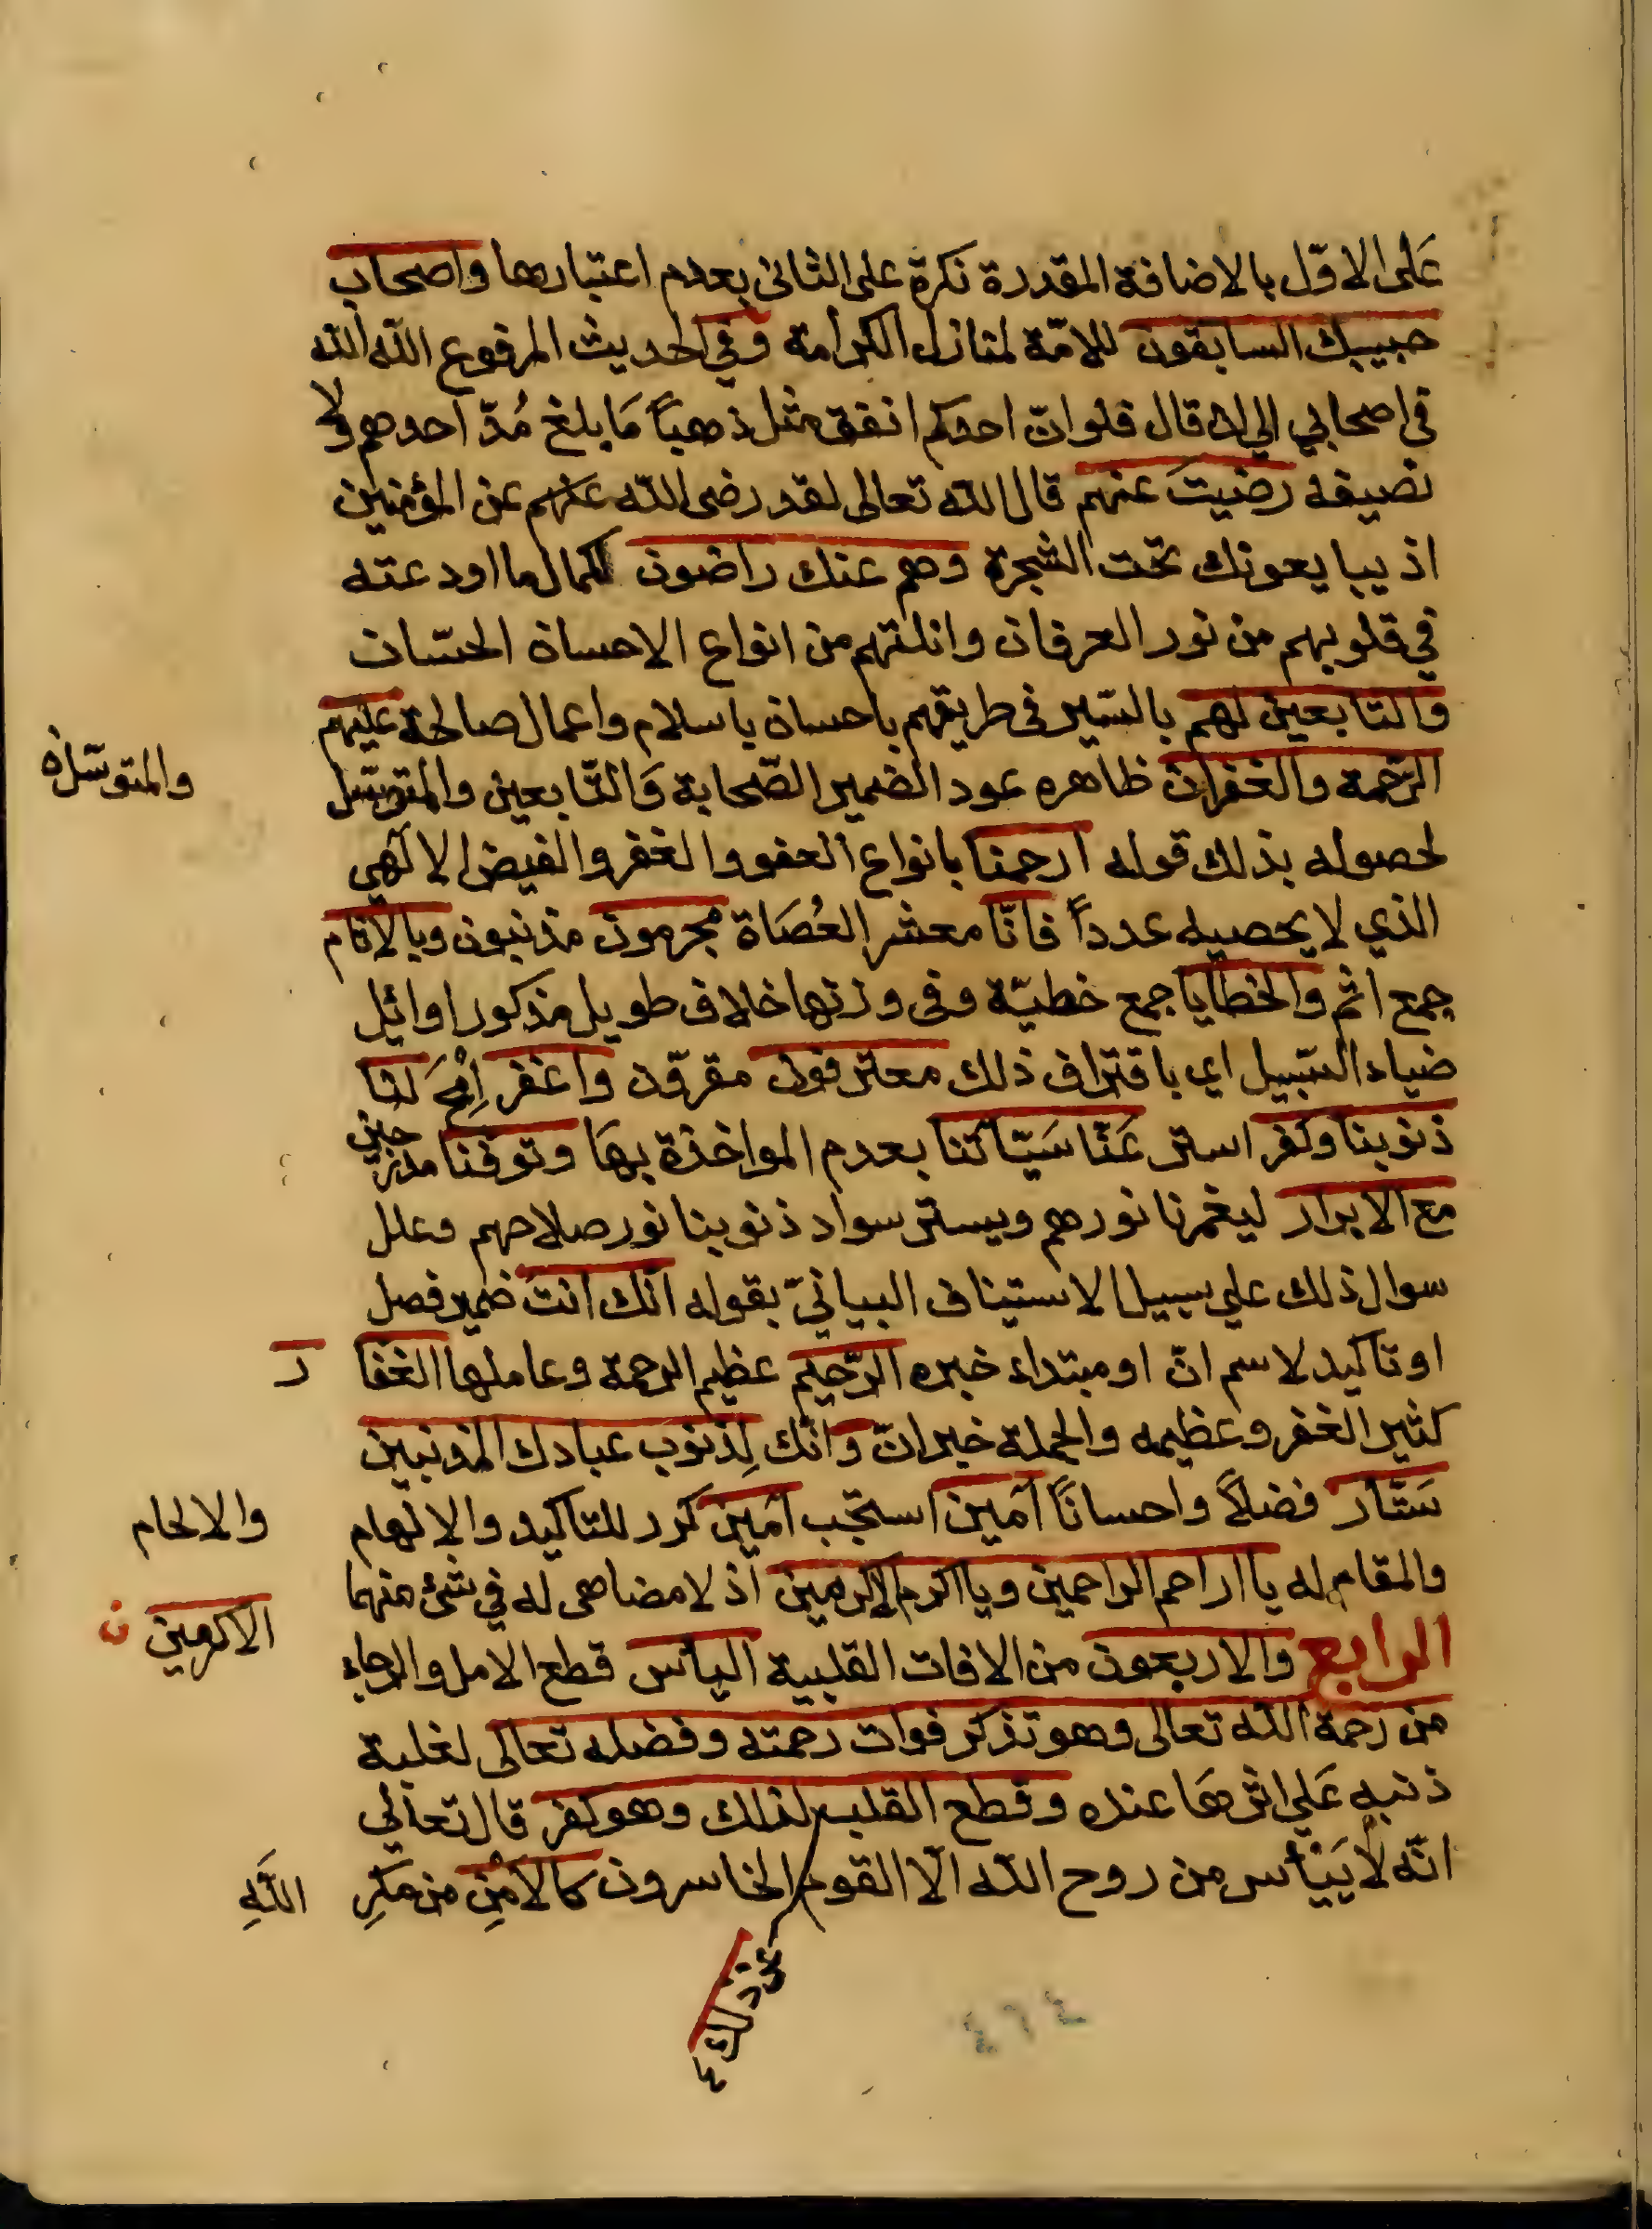 على الاوّل بالاضافة المقدرة نكرة على الثانى بعدم اعتبارها واصحاب
حبيبك السابقون للامّة لمنازل الكرامة وفي الحديث المرفوع الله الله
في اصحابي الي ان قال فلوانّ احدكم انفق مثل ذهباً مَا بلغ مُدّ احدهم ولا
نصيفه رضيتَ عنهم قال الله تعالى لقد رضى الله عنهم عن المؤمنين
اذ يبايعونك تحت الشجرة وهم عنك راضون لكمال ما اودعته
في قلوبهم من نور العرفان وانلتهم من انواع الاحسان الحسان
والتابعين لهم بالسّير فى طريقهم باحسان باسلام واعمال صالحة عليهم
الرّحمة والغفران ظاهره عود الضمير الصّحابة وَالتّابعين والمتوسّل
والمتوسّل به
لحصوله بذلك قوله ارحمنا بانواع العفو والغفر والفيض الالٓهي
الذي لا يحصيه عدداً فانّا معشر العُصَاة مجرمون مذنبون وبالاثام
جمع اثم والخطايا جمع خطيّة وفى وزنها خلاف طويل مذكور اوائل
ضياء السّبيل اي باقتراف ذلك معترفون مقرّون واغفر اِمْحَ لنا
ذنوبنا وكفر استر عَنّا سَيّاتنا بعدم المواخذة بها وتوفنا مدرجين
مع الابرار ليغمرنا نورهم ويستر سواد ذنوبنا نور صلاحهم وعلل
سوال ذلك علي سبيل الاستيناف البيانيّ بقوله انّك انتَ ضمير فصل
او تاكيد لاسم انّ او مبتداء خبره الرّحيم عظيم الرحمة وعاملها الغفا ر
كثير الغفر وعظيمه والجملة خبر انّ وانّك لِذنوب عبادك المذنبين
سَتّار فضلاً واحساناً آمين استجب آمين كرر للتاكيد والالهام
والالحام
والمقام له يا ارحم الراحمين ويا اكرم الاكرمين اذ لا مضاهى له في شئ منهما
الاكرمين ن
الرابع والاربعون من الافات القلبية الياس قطع الامل والرجاء
من رحمة الله تعالى وهو تذكر فوات رحمته وفضله تعالى لغلبة
ذنبهِ عَلي اثرهَا عنده وقطع القلب لذلك وهو كفر قال تعالي
انّه لَا يَيْأس من روح الله الّا القوم الخاسرون كالاَمْنِ من مَكرِ اللهِ
عن ذلك
٤٦٤